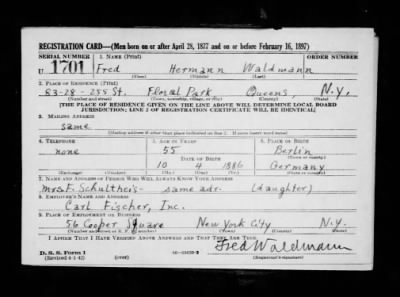 REGISTRATION CARD—(Men born on or after April 28, 1877 and on or before February 16, 1897)
SERIAL NUMBER 1. NAME (Print) ORDER NUMBER
U 1701 Fred Hermann Waldmann
(First) (Middle) (Last)
2. PLACE OF RESIDENCE (Print)
83-28-255 St. Floral Park Queens, N.Y.
(Number and street) (Town, township, village, or city) (County) (State)
[THE PLACE OF RESIDENCE GIVEN ON THE LINE ABOVE WILL DETERMINE LOCAL BOARD
JURISDICTION; LINE 2 OF REGISTRATION CERTIFICATE WILL BE IDENTICAL]
3. MAILING ADDRESS
same
[Mailing address if other than place indicated on line 2. If same insert word same]
4. TELEPHONE 5. AGE IN YEARS 6. PLACE OF BIRTH
none 55 Berlin
DATE OF BIRTH (Town or county)
10 4 1886 Germany
(Mo.) (Day) (Yr.) (State or country)
7. NAME AND ADDRESS OF PERSON WHO WILL ALWAYS KNOW YOUR ADDRESS
Mrs. F. Schultheis- same adr. (daughter)
8. EMPLOYER'S NAME AND ADDRESS
Carl Fischer, Inc.
9. PLACE OF EMPLOYMENT OR BUSINESS
56 Cooper Square New York City N.Y.
(Number and street or R. F. D. number) (Town) (County) (State)
I AFFIRM THAT I HAVE VERIFIED ABOVE ANSWERS AND THAT THEY ARE TRUE.
D. S. S. Form 1 Fred Waldmann
(Revised 4-1-42) (over) (Registrant's signature)